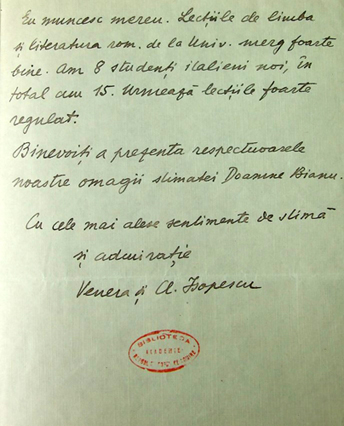 Eu muncesc mereu. Lecțiile de limba
și literatura rom. de la Univ. merg foarte
bine. Am 8 studenți italieni noi, în
total am 15. Urmează lecțiile foarte
regulat.
Binevoiți a prezenta respectuoasele
noastre omagii stimatei Doamne Bianu.
Cu cele mai alese sentimente de stimă
și admirație
Venera și Cl. Isopescu
BIBLIOTECA
ACADEMIEI